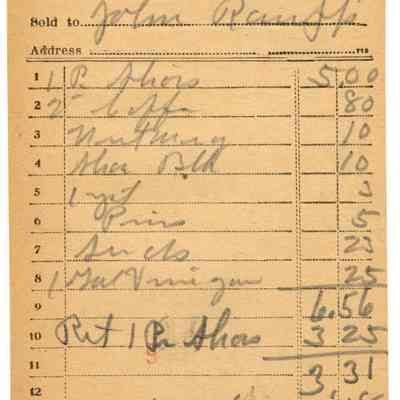 Sold to John
Address
1 1 Pr Shoes 5.00
2 2 Coffe 80
3 Nutmeg 10
4 Shoe Blk 10
5 1 3
6 Pins 5
7 23
8 1 Gal Vinegar 25
9 6.56
10 Ret 1 Pr Shoes 3 25
11 3,31
12